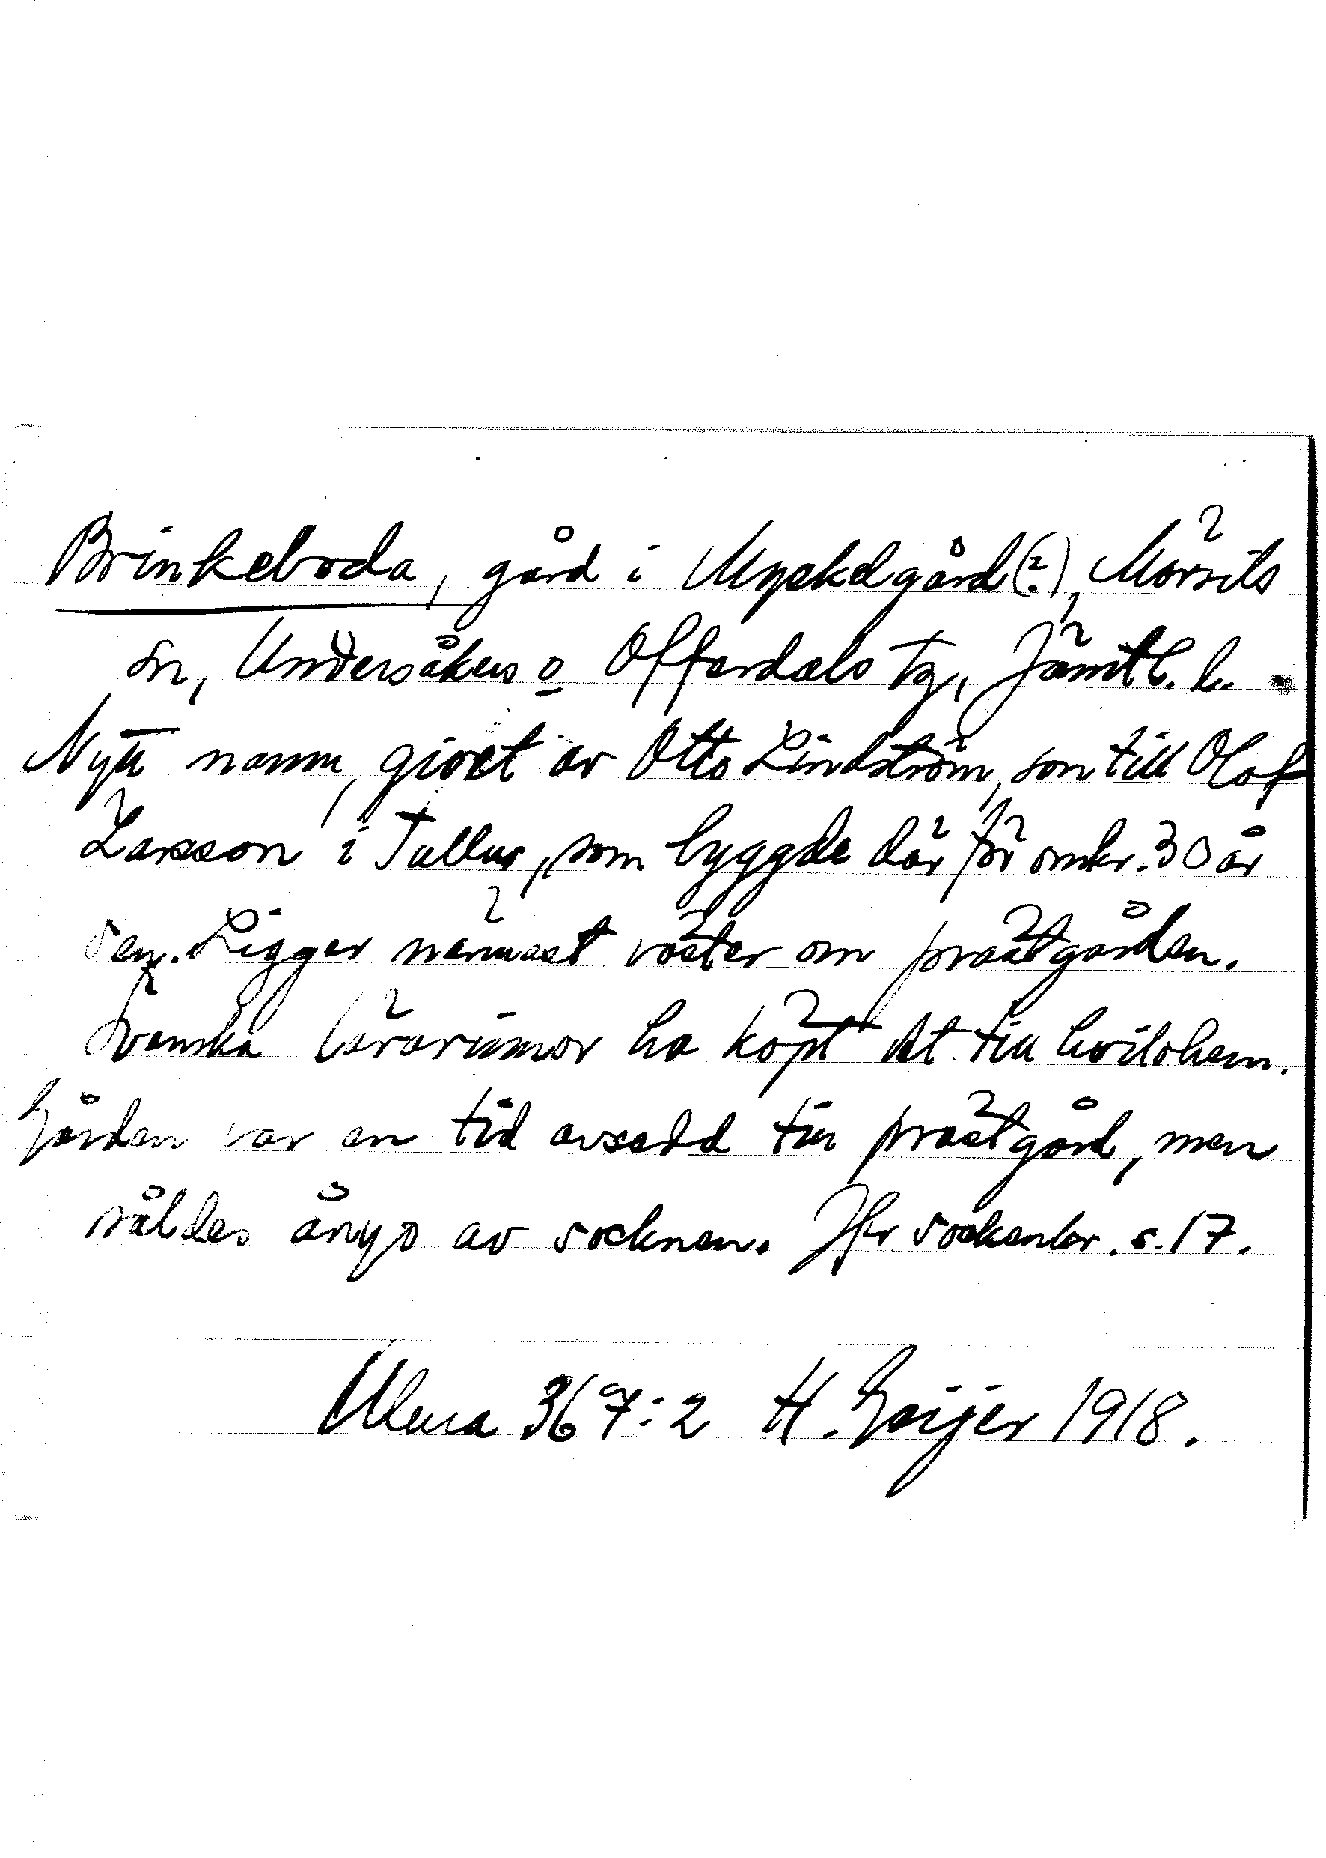 Brinkeboda, gård i Myckelgård(?), Mörsils
sn, Undersåkers o Offerdals tg, Jämtl. l.
Nytt namn, givet av Otto Lindström, son till Olof
Larsson i Tullus, som byggde där för omkr. 30 år
sen. Ligger närmast väster om prästgården.
Svenska lärarinnor ha köpt det till hvilohem.
Gården var en tid avsedd till prästgård, men
såldes ånyo av socknen. Jfr sockenbr. s. 17.
Uluca 367:2 H. Geijer 1918.